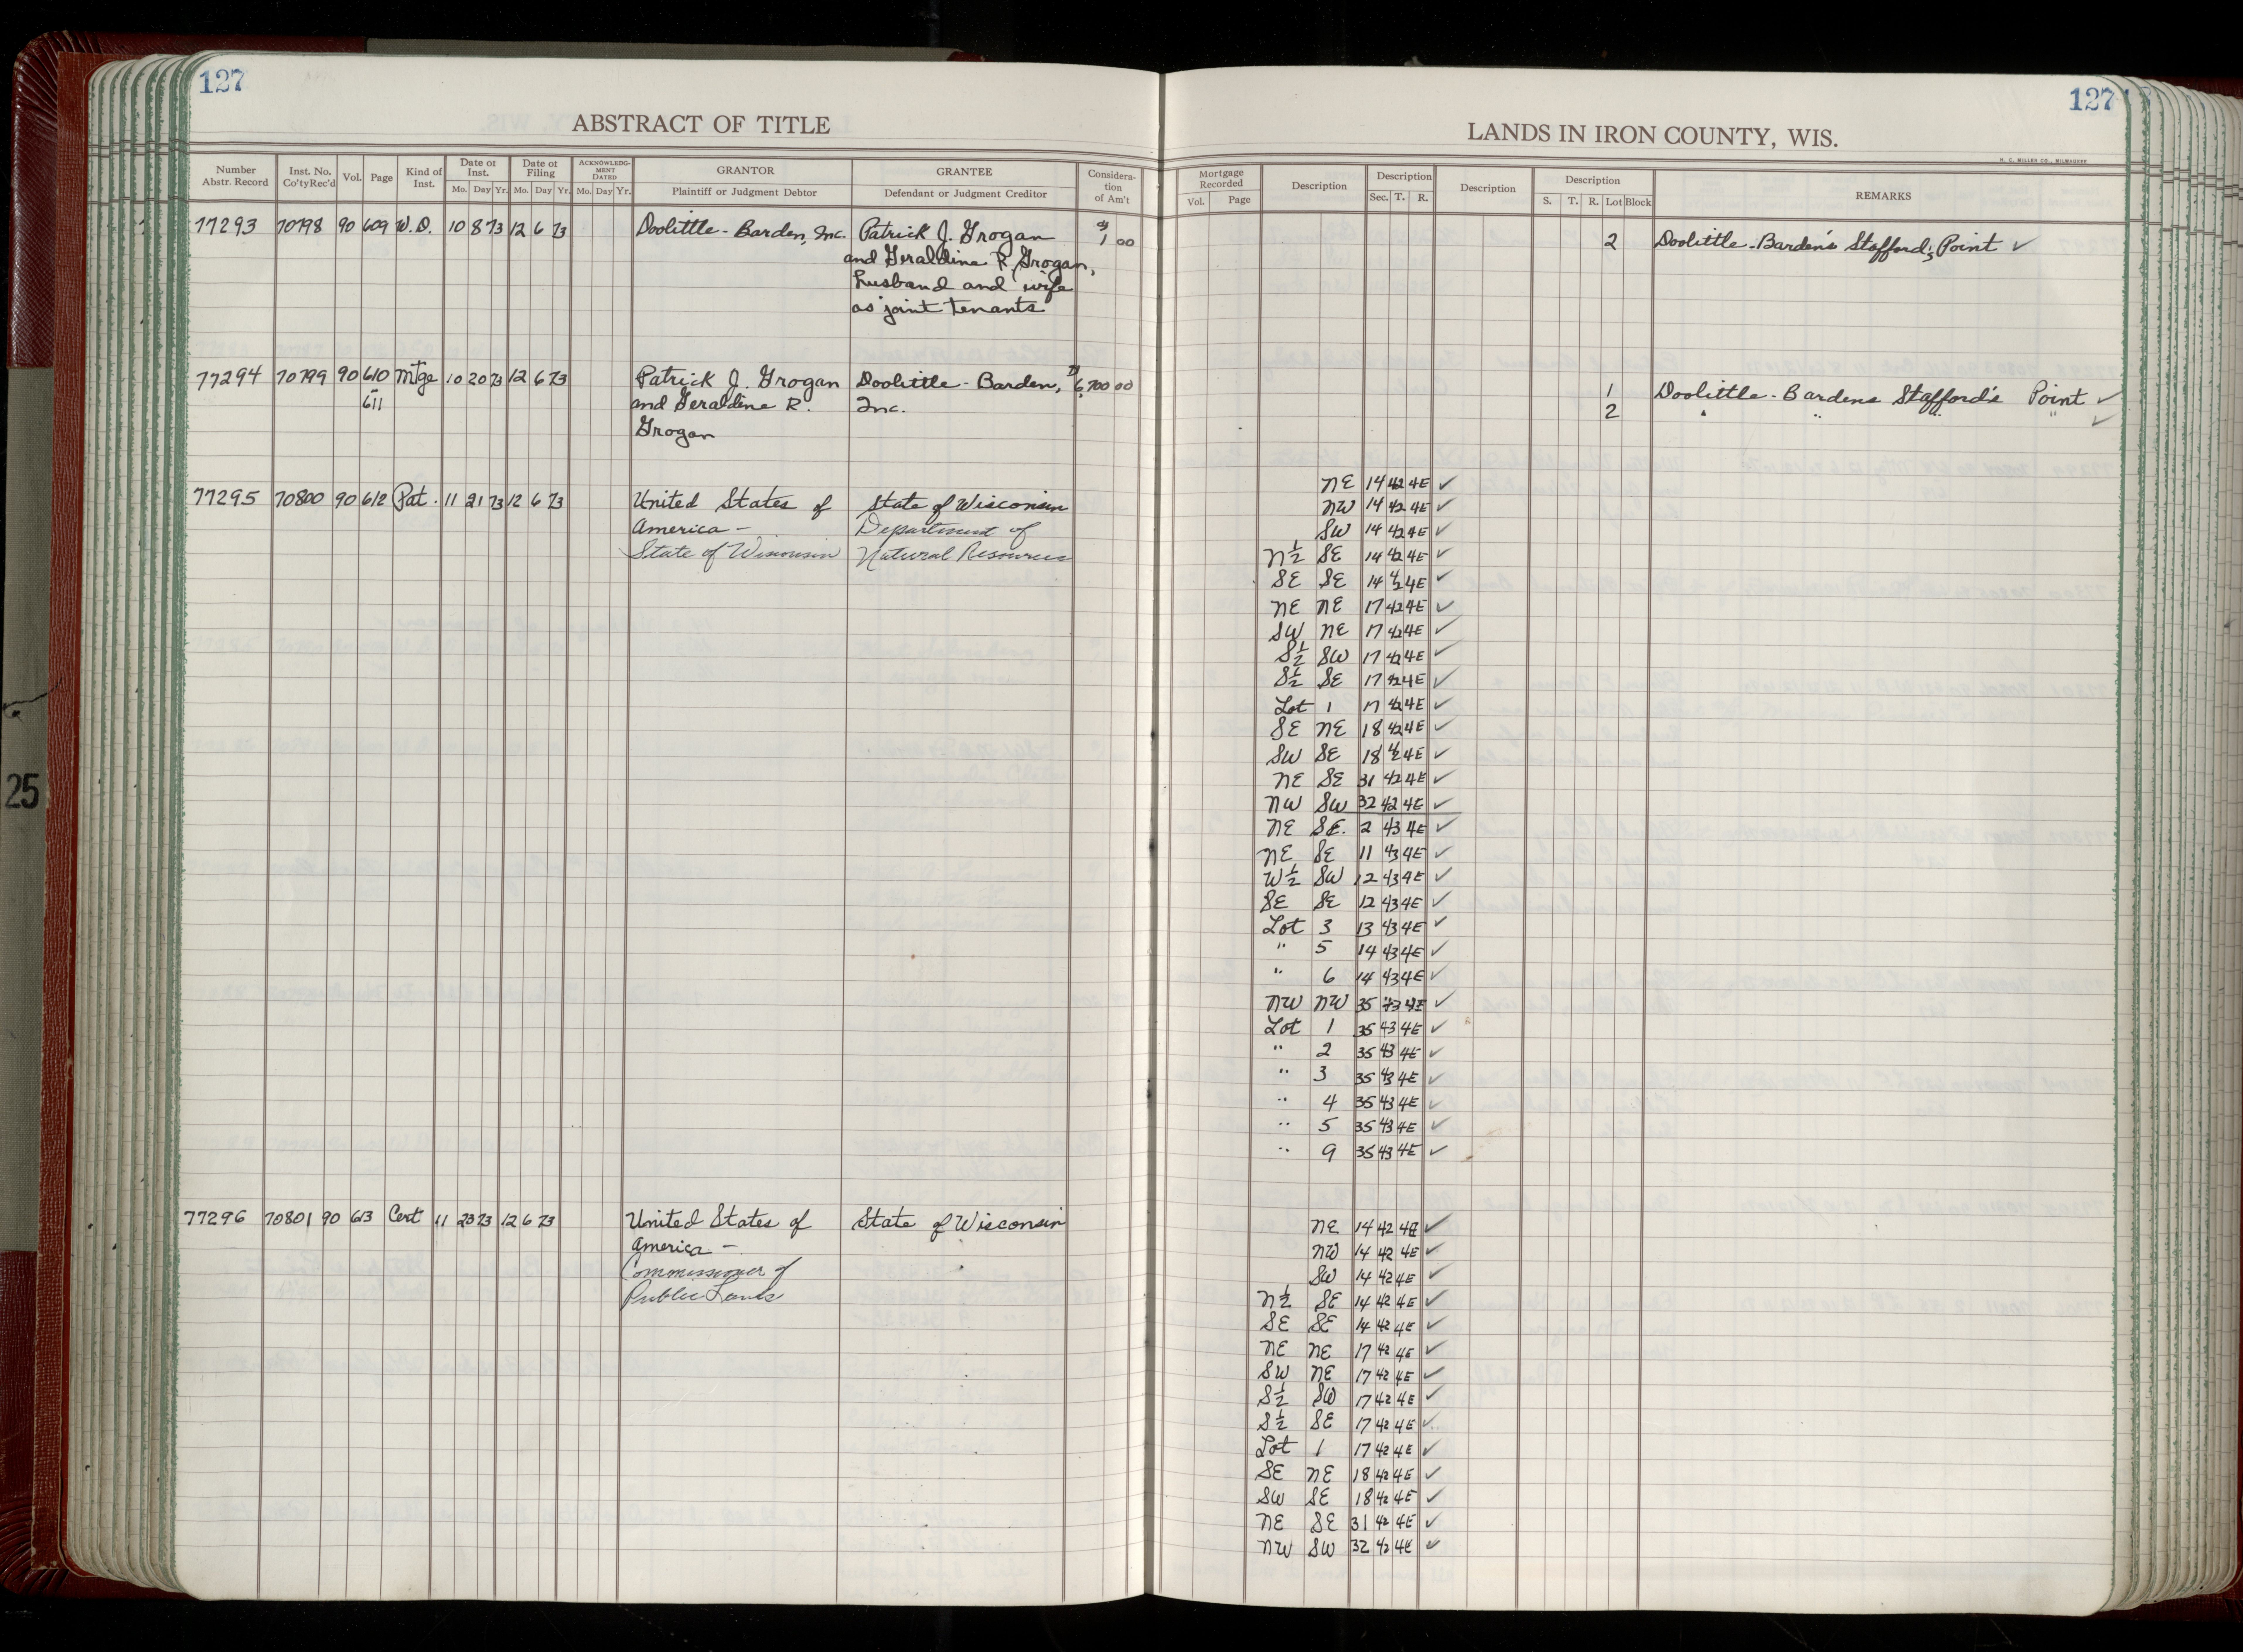 127
127
ABSTRACT OF TITLE
LANDS IN IRON COUNTY, WIS.
H. C. MILLER CO., MILWAUKEE
Number Abstr. Record Inst. No. Co'ty Rec'd Vol. Page Kind of Inst. Date of Inst. Mo. Day Yr. Date of Filing Mo. Day Yr. ACKNOWLEDGMENT DATED Mo. Day Yr. GRANTOR Plaintiff or Judgment Debtor GRANTEE Defendant or Judgment Creditor Consideration of Am't
Mortgage Recorded Vol. Page Description Description Sec. T. R. Description Description S. T. R. Lot Block REMARKS
77293 70798 90 609 W.D. 10 8 73 12 6 73 Doolittle-Barden, Inc. Patrick J. Grogan 1 00 2 Doolittle-Barden's Stafford's Point ✓
and Geraldine R. Grogan,
husband and wife
as joint tenants
77294 70799 90 610 Mtge 10 20 73 12 6 73 Patrick J. Grogan Doolittle-Barden, 6,700 00 1 Doolittle-Bardens Stafford's Point ✓
611 and Geraldine R. Inc. 2 " " " " ✓
Grogan
NE 14 42 4E ✓
77295 70800 90 612 Pat. 11 21 73 12 6 73 United States of State of Wisconsin NW 14 42 4E ✓
America - Department of SW 14 42 4E ✓
State of Wisconsin Natural Resources N½ SE 14 42 4E ✓
SE SE 14 42 4E ✓
NE NE 17 42 4E ✓
SW NE 17 42 4E ✓
S½ SW 17 42 4E ✓
S½ SE 17 42 4E ✓
Lot 1 17 42 4E ✓
SE NE 18 42 4E ✓
SW SE 18 42 4E ✓
NE SE 31 42 4E ✓
NW SW 32 42 4E ✓
NE SE. 2 43 4E ✓
NE SE 11 43 4E ✓
W½ SW 12 43 4E ✓
SE SE 12 43 4E ✓
Lot 3 13 43 4E ✓
" 5 14 43 4E ✓
" 6 14 43 4E ✓
NW NW 35 43 4E ✓
Lot 1 35 43 4E ✓
" 2 35 43 4E ✓
" 3 35 43 4E ✓
" 4 35 43 4E ✓
" 5 35 43 4E ✓
" 9 35 43 4E ✓
77296 70801 90 613 Cert 11 23 73 12 6 73 United States of State of Wisconsin NE 14 42 4E ✓
America - NW 14 42 4E ✓
Commissioner of SW 14 42 4E ✓
Public Lands N½ SE 14 42 4E ✓
SE SE 14 42 4E ✓
NE NE 17 42 4E ✓
SW NE 17 42 4E ✓
S½ SW 17 42 4E ✓
S½ SE 17 42 4E ✓
Lot 1 17 42 4E ✓
SE NE 18 42 4E ✓
SW SE 18 42 4E ✓
NE SE 31 42 4E ✓
NW SW 32 42 4E ✓
25